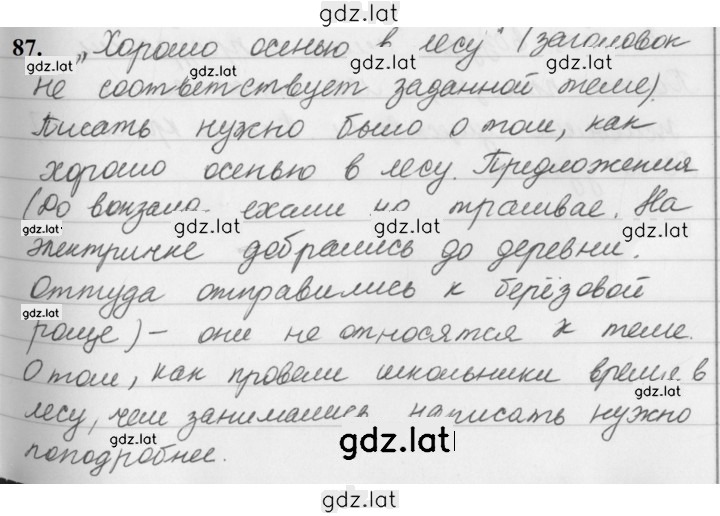 gdz.lat
87. „Хорошо осенью в лесу" (заголовок
gdz.lat gdz.lat gdz.lat
не соответствует заданной теме).
gdz.lat
Писать нужно было о том, как
хорошо осенью в лесу. Предложения
gdz.lat gdz.lat
(До вокзала ехали на трамвае. На
gdz.lat gdz.lat gdz.lat
электричке добрались до деревни.
Оттуда отправились к берёзовой
gdz.lat
роще) – они не относятся к теме.
О том, как провели школьники время в
gdz.lat gdz.lat
лесу, чем занимались написать нужно
gdz.lat gdz.lat
поподробнее.
gdz.lat